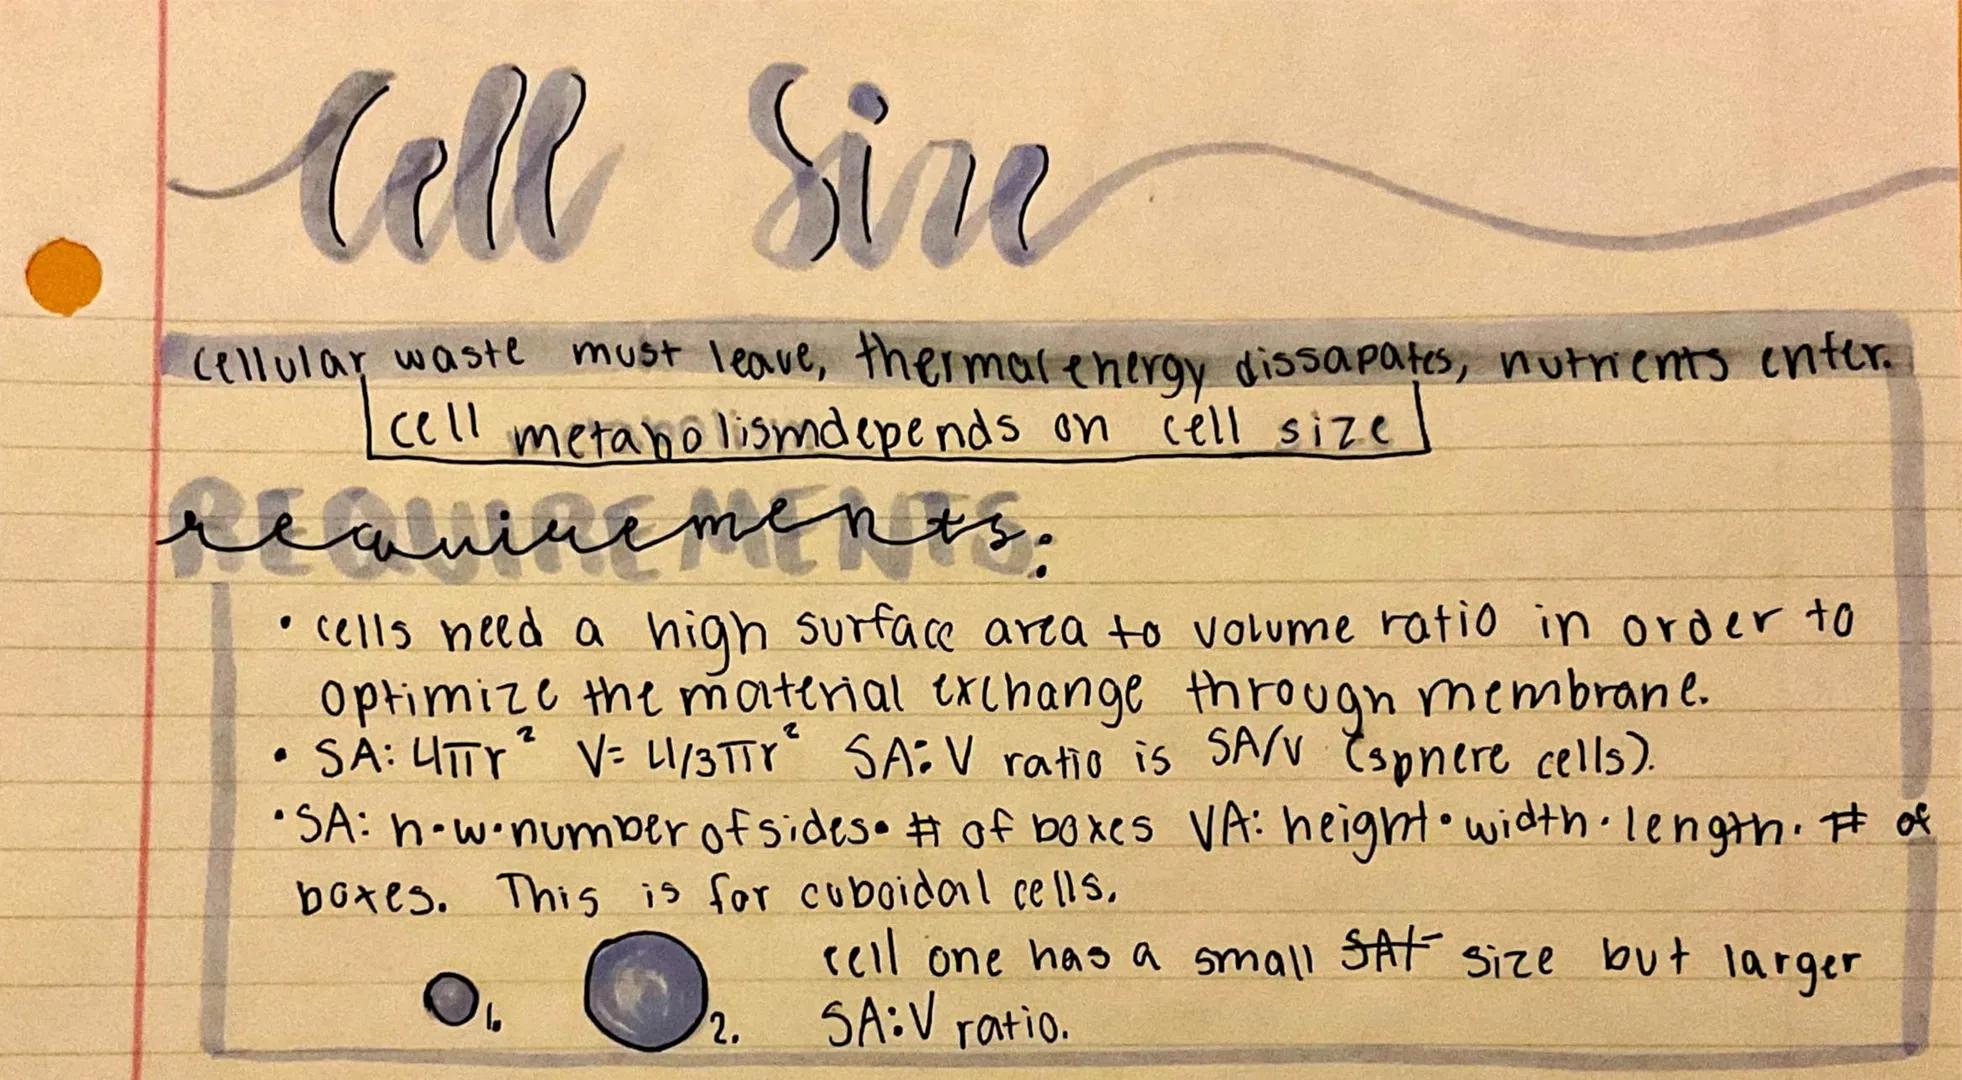 Cell Size
cellular waste must leave, thermal energy dissapates, nutrients enter.
cell metabolism depends on cell size
REQUIREMENTS:
requirements:
• cells need a high surface area to volume ratio in order to
optimize the material exchange through membrane.
• SA: 4πr² V= 4/3πr² SA:V ratio is SA/V (sphere cells).
• SA: h•w•number of sides• # of boxes VA: height•width•length• # of
boxes. This is for cuboidal cells.
cell one has a small SAt size but larger
1. 2. SA:V ratio.